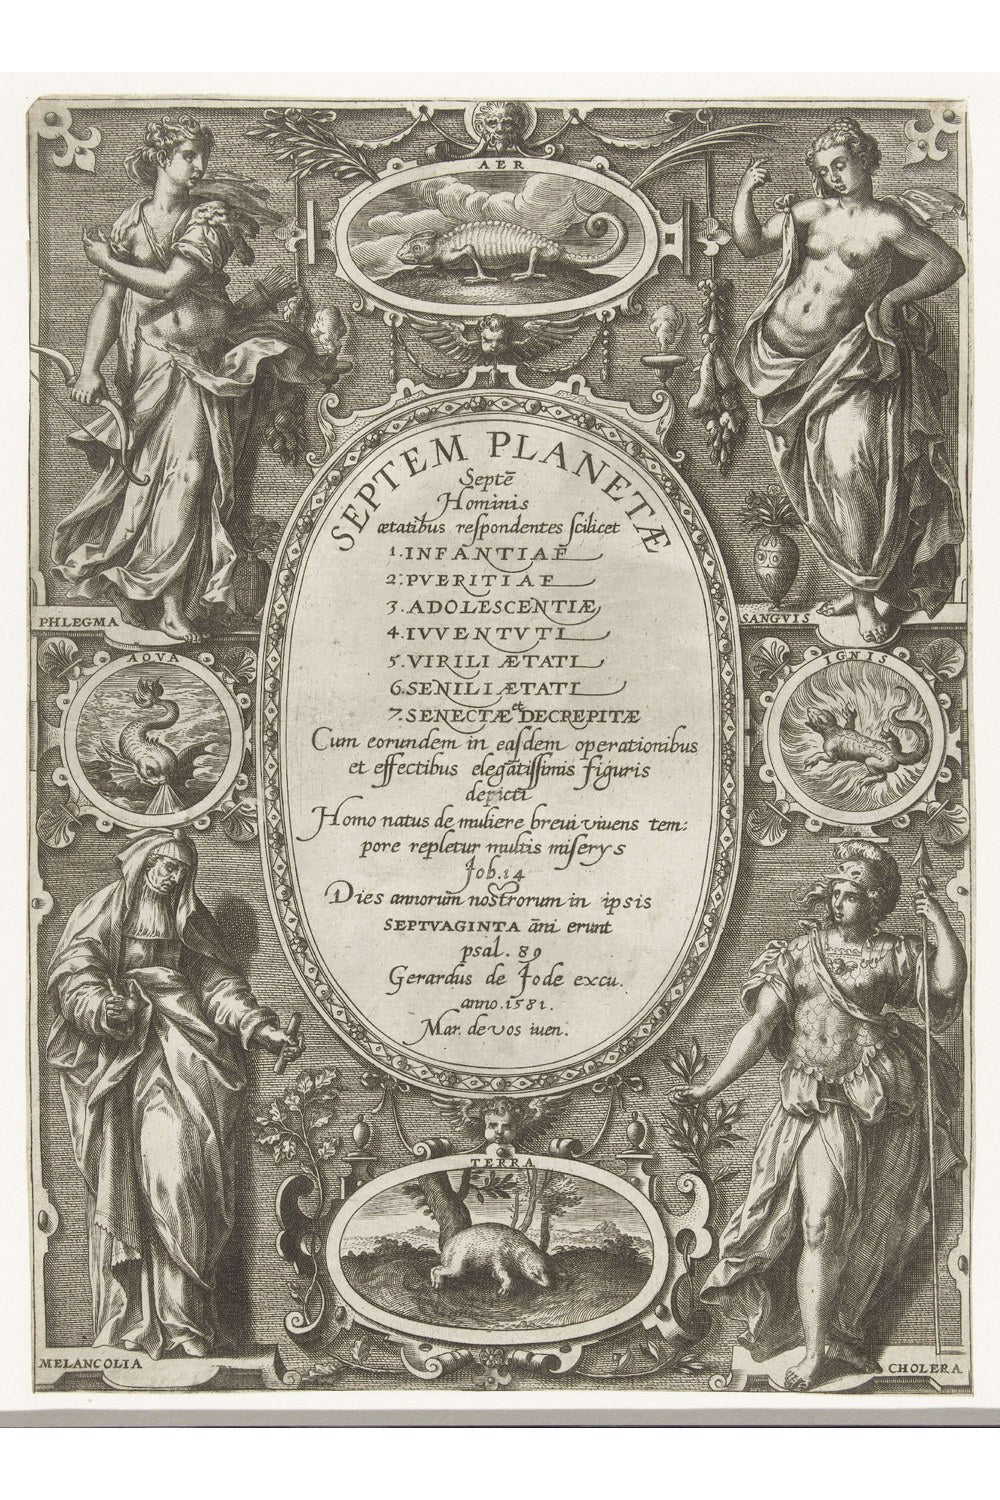 AER
SEPTEM PLANETÆ
Septē
Hominis
ætatibus respondentes scilicet
1. INFANTIAE
2. PVERITIAE
3. ADOLESCENTIÆ
4. IVVENTVTI
5. VIRILI ÆTATI
6. SENILI ÆTATI
7. SENECTÆ et DECREPITÆ
Cum eorundem in easdem operationibus
et effectibus elegātissimis figuris
depicti
Homo natus de muliere brevi vivens tem:
pore repletur multis miserys
Job. 14
Dies annorum nostrorum in ipsis
SEPTVAGINTA āni erunt
psal. 89
Gerardus de Jode excu.
anno. 1581.
Mar. de vos iuen.
PHLEGMA
SANGVIS
AQVA
IGNIS
TERRA
MELANCOLIA
CHOLERA